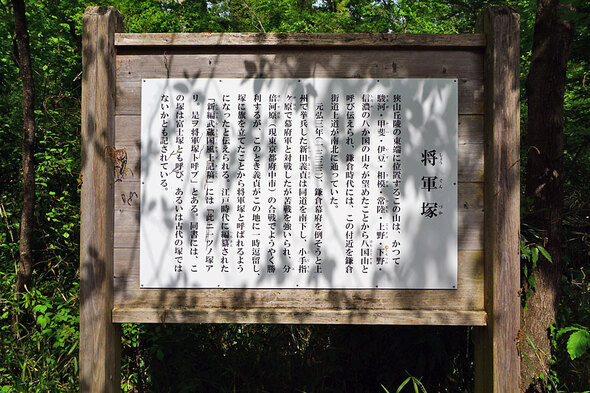 将軍塚
しょうぐんづか
狭山丘陵の東端に位置するこの山は、かつて
駿河・甲斐・伊豆・相模・常陸・上野・下野・
信濃の八か国の山々が望めたことから八国山と
呼び伝えられ、鎌倉時代には、この付近を鎌倉
街道上道が南北に通っていた。
元弘三年(一三三三)、鎌倉幕府を倒そうと上
州で挙兵した新田義貞は同道を南下し、小手指
ケ原で幕府軍と対戦したが苦戦を強いられ、分
倍河原(現東京都府中市)の合戦でようやく勝
利するが、このとき義貞がこの地に一時逗留し、
塚に旗を立てたことから将軍塚と呼ばれるよう
になったと伝えられる。江戸時代に編纂された
「新編武蔵国風土記稿」には「此ニ一ツノ塚ア
リ。是ヲ将軍塚ト呼ブ」とある。同書には、こ
の塚は富士塚とも呼び、あるいは古代の塚では
ないかとも記されている。